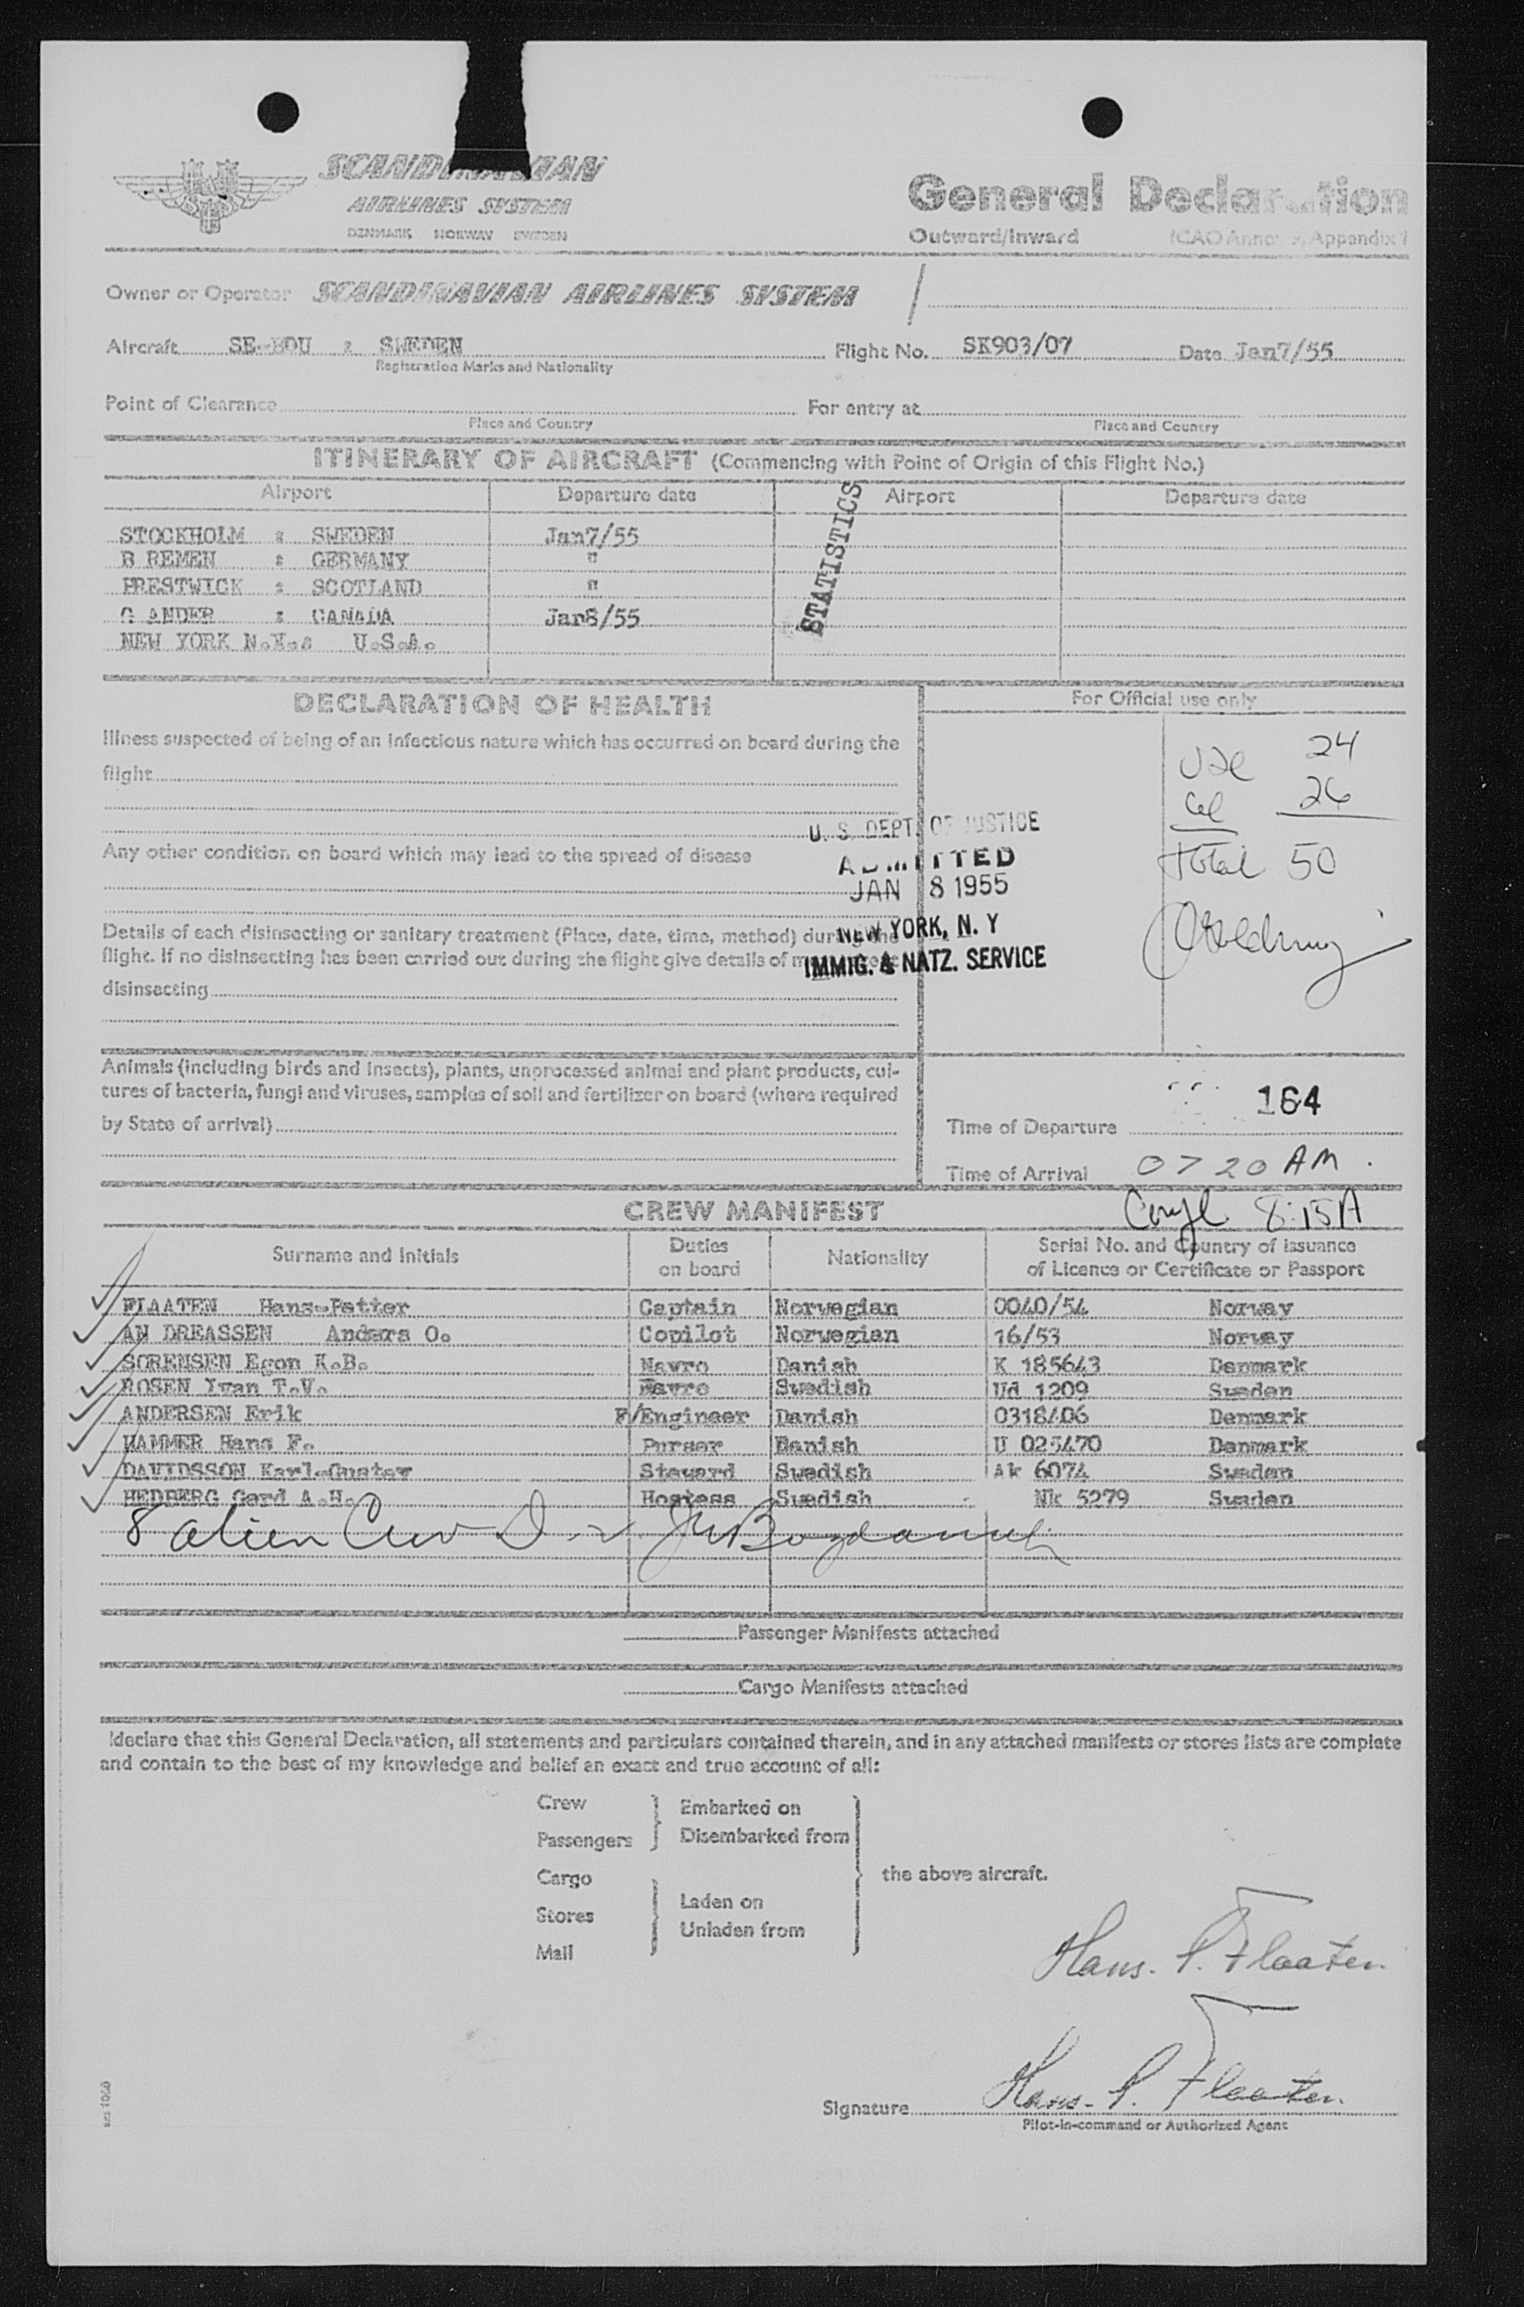 SCANDINAVIAN
AIRLINES SYSTEM
DENMARK NORWAY SWEDEN
General Declaration
Outward/Inward (ICAO Annex 9, Appendix 1
Owner or Operator SCANDINAVIAN AIRLINES SYSTEM
Aircraft SE-BDU : SWEDEN Flight No. SK903/07 Date Jan7/55
Registration Marks and Nationality
Point of Clearance For entry at
Place and Country Place and Country
ITINERARY OF AIRCRAFT (Commencing with Point of Origin of this Flight No.)
Airport Departure date Airport Departure date
STATISTICS
STOCKHOLM : SWEDEN Jan7/55
B REMEN : GERMANY "
PRESTWICK : SCOTLAND "
G ANDER : CANADA Jan8/55
NEW YORK N.Y.: U.S.A.
DECLARATION OF HEALTH
For Official use only
Illness suspected of being of an infectious nature which has occurred on board during the
flight
24
26
Total 50
U. S. DEPT. OF JUSTICE
ADMITTED
JAN 8 1955
NEW YORK, N. Y
IMMIG. & NATZ. SERVICE
Any other condition on board which may lead to the spread of disease
Details of each disinsecting or sanitary treatment (Place, date, time, method) during the
flight. If no disinsecting has been carried out during the flight give details of most recent
disinsecting
Animals (including birds and insects), plants, unprocessed animal and plant products, cul-
tures of bacteria, fungi and viruses, samples of soil and fertilizer on board (where required
by State of arrival)
164
Time of Departure
Time of Arrival 0720 AM.
8:15A
CREW MANIFEST
Surname and Initials Duties on board Nationality Serial No. and Country of issuance of Licence or Certificate or Passport
FLAATEN Hans-Petter Captain Norwegian 0040/54 Norway
AN DREASSEN Anders O. Copilot Norwegian 16/53 Norway
SORENSEN Egon K.B. Navro Danish K 185643 Denmark
ROSEN Ivan T.V. Navro Swedish Ud 1209 Sweden
ANDERSEN Erik F/Engineer Danish 0318406 Denmark
HAMMER Hans F. Purser Danish U 025470 Denmark
DAVIDSSON Karl-Gustav Steward Swedish Ak 6074 Sweden
HEDBERG Gerd A.H. Hostess Swedish Nk 5279 Sweden
8 alien Crew
Passenger Manifests attached
Cargo Manifests attached
I declare that this General Declaration, all statements and particulars contained therein, and in any attached manifests or stores lists are complete
and contain to the best of my knowledge and belief an exact and true account of all:
Crew
Passengers
Embarked on
Disembarked from
Cargo
Stores
Mail
Laden on
Unladen from
the above aircraft.
Hans. P. Flaaten.
Hans. P. Flaaten.
Signature
Pilot-in-command or Authorized Agent